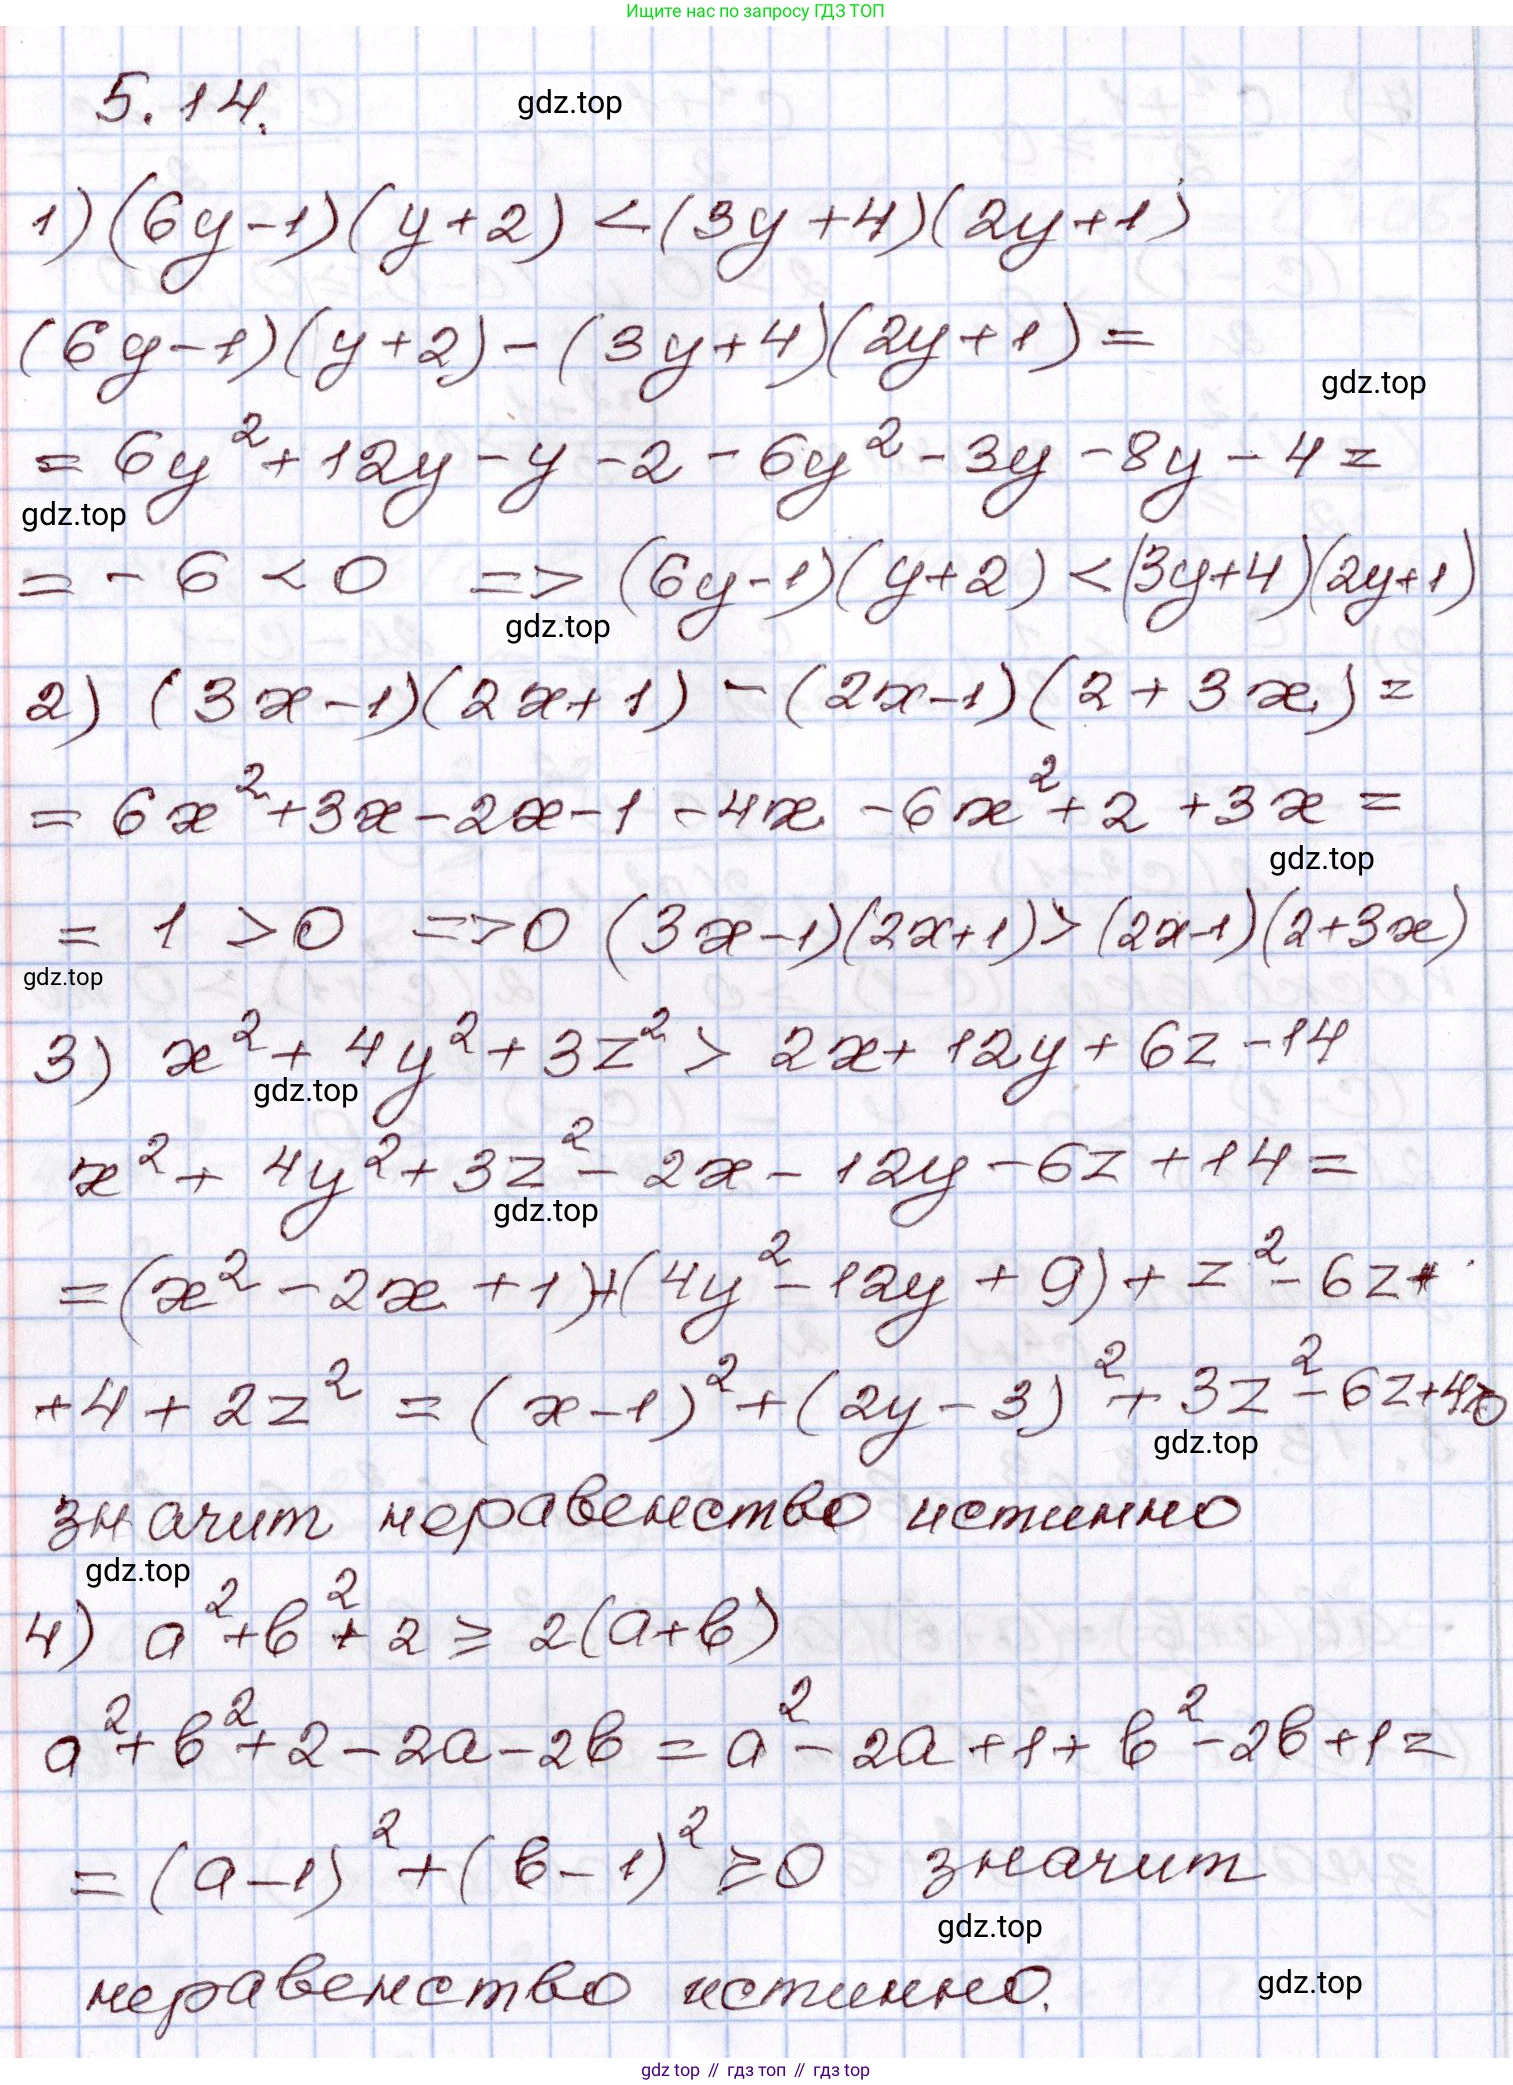 Ищите нас по запросу ГДЗ ТОП
5.14.
gdz.top
1) (6y-1)(y+2) < (3y+4)(2y+1)
(6y-1)(y+2) - (3y+4)(2y+1) =
gdz.top
= 6y² + 12y - y - 2 - 6y² - 3y - 8y - 4 =
gdz.top
= -6 < 0 => (6y-1)(y+2) < (3y+4)(2y+1)
gdz.top
2) (3x-1)(2x+1) - (2x-1)(2+3x) =
= 6x² + 3x - 2x - 1 - 4x - 6x² + 2 + 3x =
gdz.top
= 1 > 0 => 0 (3x-1)(2x+1) > (2x-1)(2+3x)
gdz.top
3) x² + 4y² + 3z² > 2x + 12y + 6z - 14
gdz.top
x² + 4y² + 3z² - 2x - 12y - 6z + 14 =
gdz.top
= (x² - 2x + 1) + (4y² - 12y + 9) + z² - 6z +
+ 4 + 2z² = (x-1)² + (2y-3)² + 3z² - 6z + 4 > 0
gdz.top
значит неравенство истинно
gdz.top
4) a² + b² + 2 ≥ 2(a+b)
a² + b² + 2 - 2a - 2b = a² - 2a + 1 + b² - 2b + 1 =
= (a-1)² + (b-1)² ≥ 0 значит
gdz.top
неравенство истинно.
gdz.top
gdz top // гдз топ // гдз top